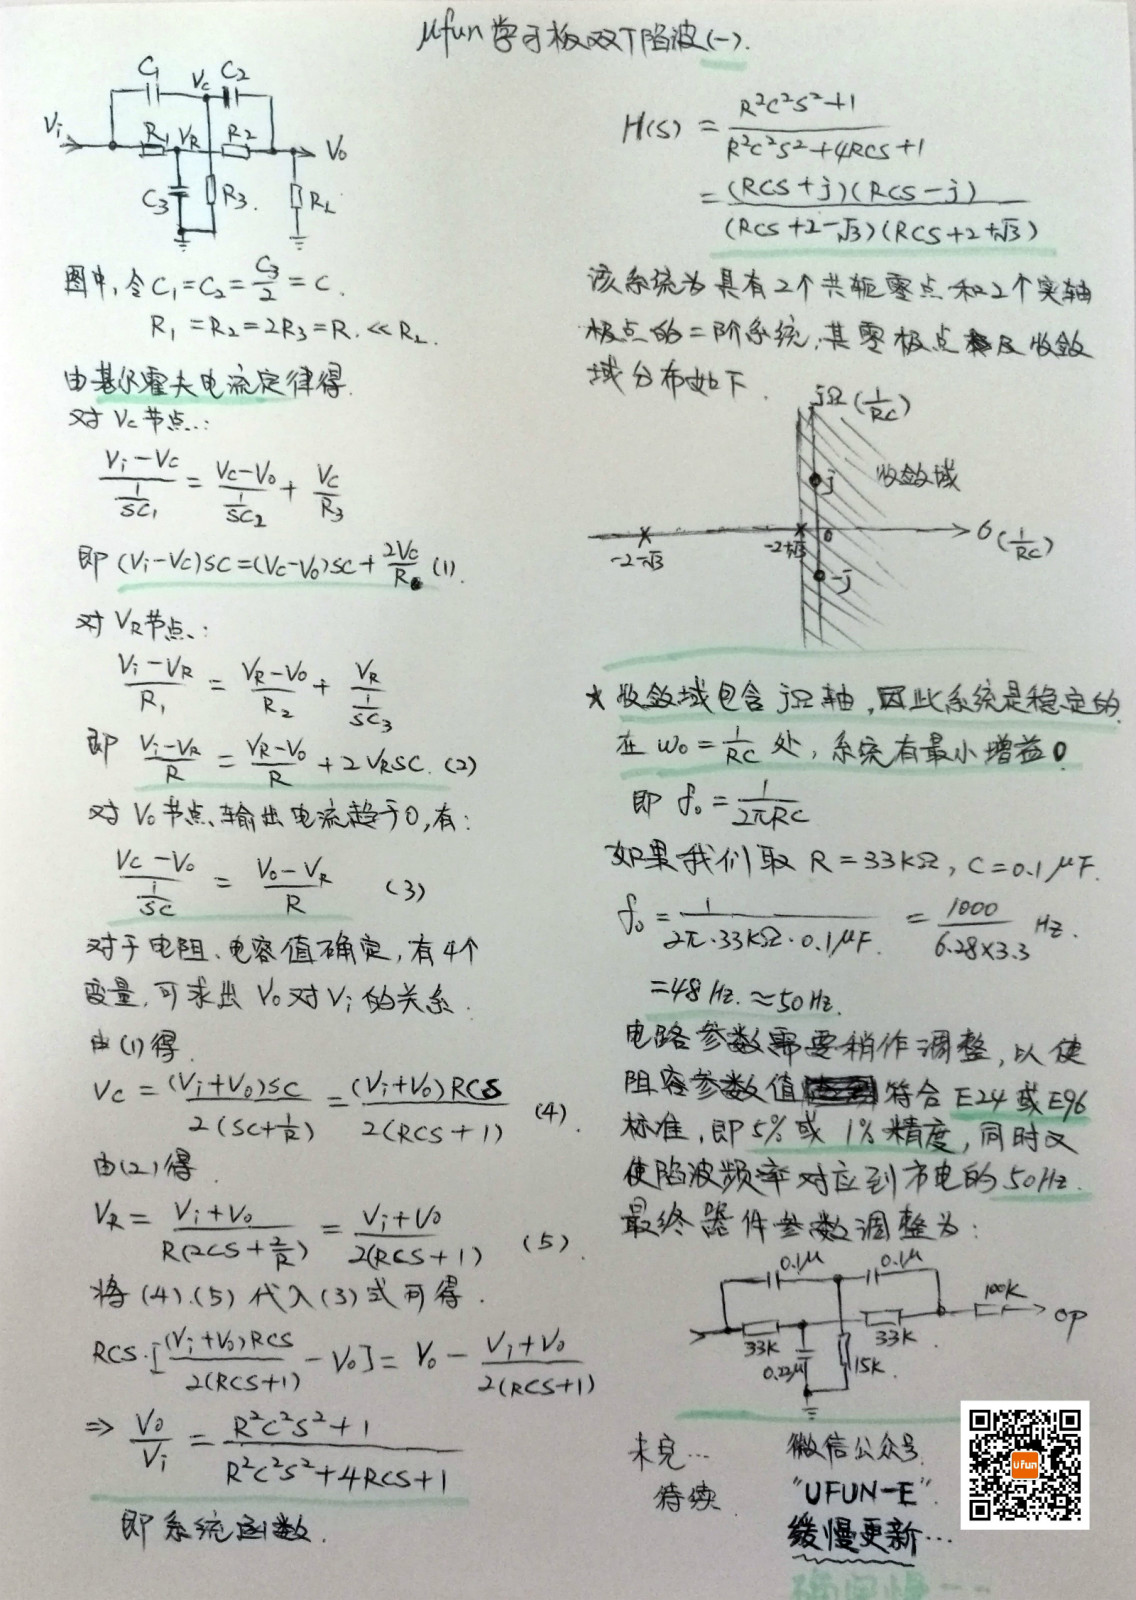 μfun学习板双T陷波(一).
C1 Vc C2
Vi R1 VR R2 Vo
C3 R3. RL
图中,令C1=C2=C3/2=C.
R1=R2=2R3=R.≪RL.
由基尔霍夫电流定律得.
对Vc节点:
(Vi-Vc)/(1/SC1)=(Vc-Vo)/(1/SC2)+Vc/R3
即(Vi-Vc)SC=(Vc-Vo)SC+2Vc/R (1).
对VR节点:
(Vi-VR)/R1=(VR-Vo)/R2+VR/(1/SC3)
即 (Vi-VR)/R=(VR-Vo)/R+2VRSC. (2)
对Vo节点,输出电流趋于0,有:
(Vc-Vo)/(1/SC)=(Vo-VR)/R (3)
对于电阻、电容值确定,有4个
变量,可求出Vo对Vi的关系.
由(1)得.
Vc=(Vi+Vo)SC/2(SC+1/R)=(Vi+Vo)RCS/2(RCS+1) (4).
由(2)得.
VR=(Vi+Vo)/R(2CS+2/R)=(Vi+Vo)/2(RCS+1) (5).
将(4).(5)代入(3)式可得.
RCS·[(Vi+Vo)RCS/2(RCS+1)-Vo]=Vo-(Vi+Vo)/2(RCS+1)
⇒ Vo/Vi=(R²C²S²+1)/(R²C²S²+4RCS+1)
即系统函数.
H(S)=(R²C²S²+1)/(R²C²S²+4RCS+1)
=(RCS+j)(RCS-j)/(RCS+2-√3)(RCS+2+√3)
该系统为具有2个共轭零点和2个实轴
极点的二阶系统,其零极点及收敛
域分布如下.
jΩ(1/RC)
j 收敛域
-2-√3 -2+√3 0 σ(1/RC)
-j
* 收敛域包含jΩ轴,因此系统是稳定的.
在ω0=1/RC处,系统有最小增益0
即 f0=1/2πRC
如果我们取R=33KΩ,C=0.1μF.
f0=1/2π·33KΩ·0.1μF.=1000/6.28×3.3 Hz.
=48Hz.≈50Hz.
电路参数需要稍作调整,以使
阻容参数值符合E24或E96
标准,即5%或1%精度,同时又
使陷波频率对应到市电的50Hz.
最终器件参数调整为:
0.1μ 0.1μ
33K 33K 100K OP
0.22μ 15K
未完…
待续
微信公众号
"UFUN-E".
缓慢更新…
ufun